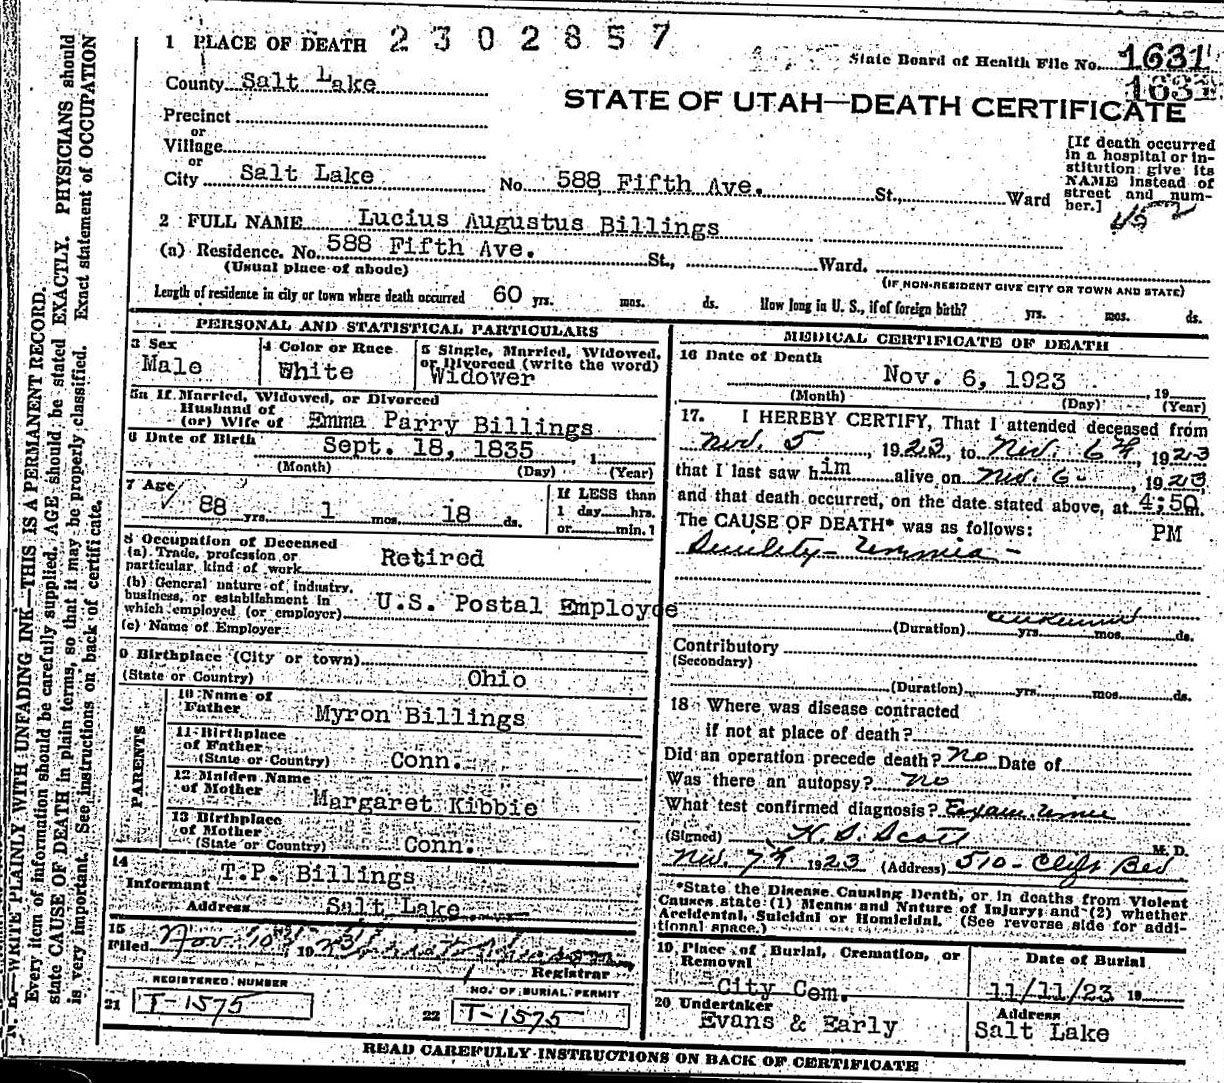 1 PLACE OF DEATH 2302857
State Board of Health File No. 1631
1631
County Salt Lake
STATE OF UTAH—DEATH CERTIFICATE
Precinct
or
Village
or
City Salt Lake No. 588 Fifth Ave. St., Ward
[If death occurred
in a hospital or in-
stitution give its
NAME instead of
street and num-
ber.]
2 FULL NAME Lucius Augustus Billings
(a) Residence. No. 588 Fifth Ave. St., Ward.
(Usual place of abode) (IF NON-RESIDENT GIVE CITY OR TOWN AND STATE)
Length of residence in city or town where death occurred 60 yrs. mos. ds. How long in U. S., if of foreign birth? yrs. mos. ds.
PERSONAL AND STATISTICAL PARTICULARS
3 Sex
Male
4 Color or Race
White
5 Single, Married, Widowed,
or Divorced (write the word)
Widower
5a If Married, Widowed, or Divorced
Husband of
(or) Wife of Emma Parry Billings
6 Date of Birth Sept. 18, 1835, 1
(Month) (Day) (Year)
7 Age
88 yrs. 1 mos. 18 ds.
If LESS than
1 day hrs.
or min.?
8 Occupation of Deceased
(a) Trade, profession or
particular kind of work Retired
(b) General nature of industry,
business, or establishment in
which employed (or employer) U.S. Postal Employee
(c) Name of Employer
9 Birthplace (City or town)
(State or Country) Ohio
PARENTS
10 Name of
Father Myron Billings
11 Birthplace
of Father
(State or Country) Conn.
12 Maiden Name
of Mother
Margaret Kibbie
13 Birthplace
of Mother
(State or Country) Conn.
14
Informant T.P. Billings
Address Salt Lake
15
Filed Nov. 10 19 23
Registrar
REGISTERED NUMBER
21 T-1575
NO. OF BURIAL PERMIT
22 T-1575
MEDICAL CERTIFICATE OF DEATH
16 Date of Death
Nov. 6, 1923 19
(Month) (Day) (Year)
17. I HEREBY CERTIFY, That I attended deceased from
Nov. 5, 1923, to Nov. 6th, 1923
that I last saw him alive on Nov. 6, 1923
and that death occurred, on the date stated above, at 4:50 m.
The CAUSE OF DEATH* was as follows: PM
Senility - Uremia -
(Duration) yrs. mos. ds.
Contributory
(Secondary)
(Duration) yrs. mos. ds.
18 Where was disease contracted
if not at place of death?
Did an operation precede death? No Date of
Was there an autopsy? No
What test confirmed diagnosis? Exam. urine
(Signed) H. S. Scott M. D.
Nov. 7th 1923 (Address) 510 - Clift Bld
*State the Disease Causing Death, or in deaths from Violent
Causes state (1) Means and Nature of Injury; and (2) whether
Accidental, Suicidal or Homicidal. (See reverse side for addi-
tional space.)
19 Place of Burial, Cremation, or
Removal
City Cem.
Date of Burial
11/11/23 19
20 Undertaker
Evans & Early
Address
Salt Lake
READ CAREFULLY INSTRUCTIONS ON BACK OF CERTIFICATE
N. B.—WRITE PLAINLY WITH UNFADING INK—THIS IS A PERMANENT RECORD.
Every item of information should be carefully supplied. AGE should be stated EXACTLY. PHYSICIANS should
state CAUSE OF DEATH in plain terms, so that it may be properly classified. Exact statement of OCCUPATION
is very important. See instructions on back of certificate.